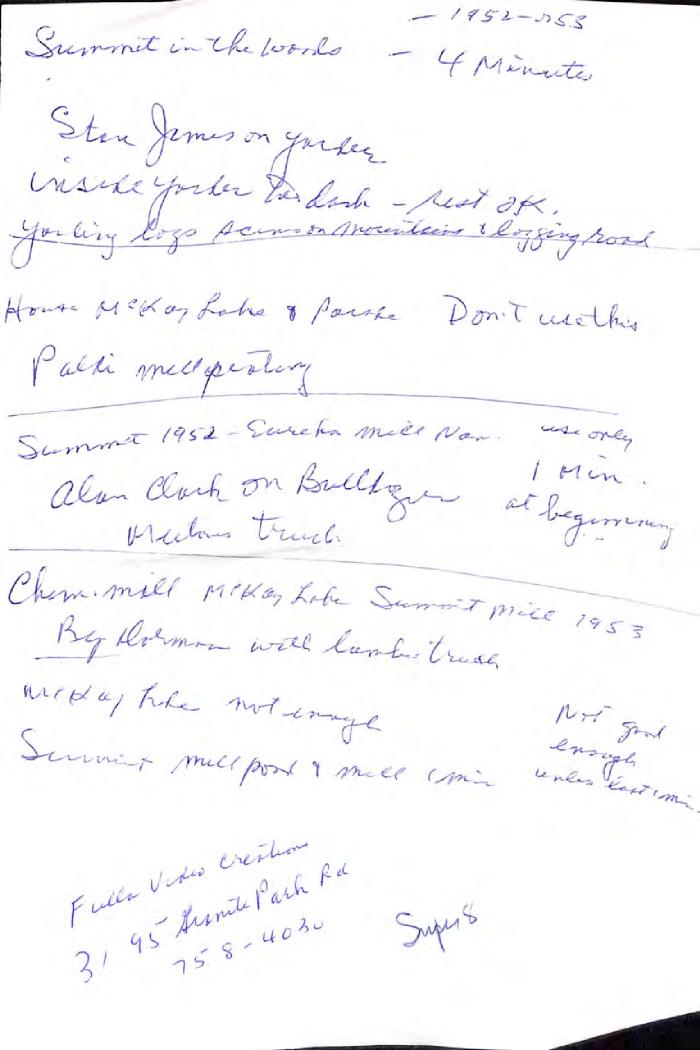 Summit in the Woods - 1952-1953
- 4 Minutes
Stan James on yarder
inside yarder too dark - rest OK.
Yarding logs scenes on mountains & logging road
House McKay Lake & Don't use this
Paldi mill
Summit 1952 - Eureka mill Nan. use only
1 Min.
Alan Clark on Bulldozer at beginning
truck
Chem. mill McKay Lake Summit Mill 1953
Dorman with lumber truck
McKay Lake not enough
Not good
enough
unless last 1 min.
Summit mill pond & mill 1 min
Fuller Video Creations
3195 Granite Park Rd
758-4030
Super 8